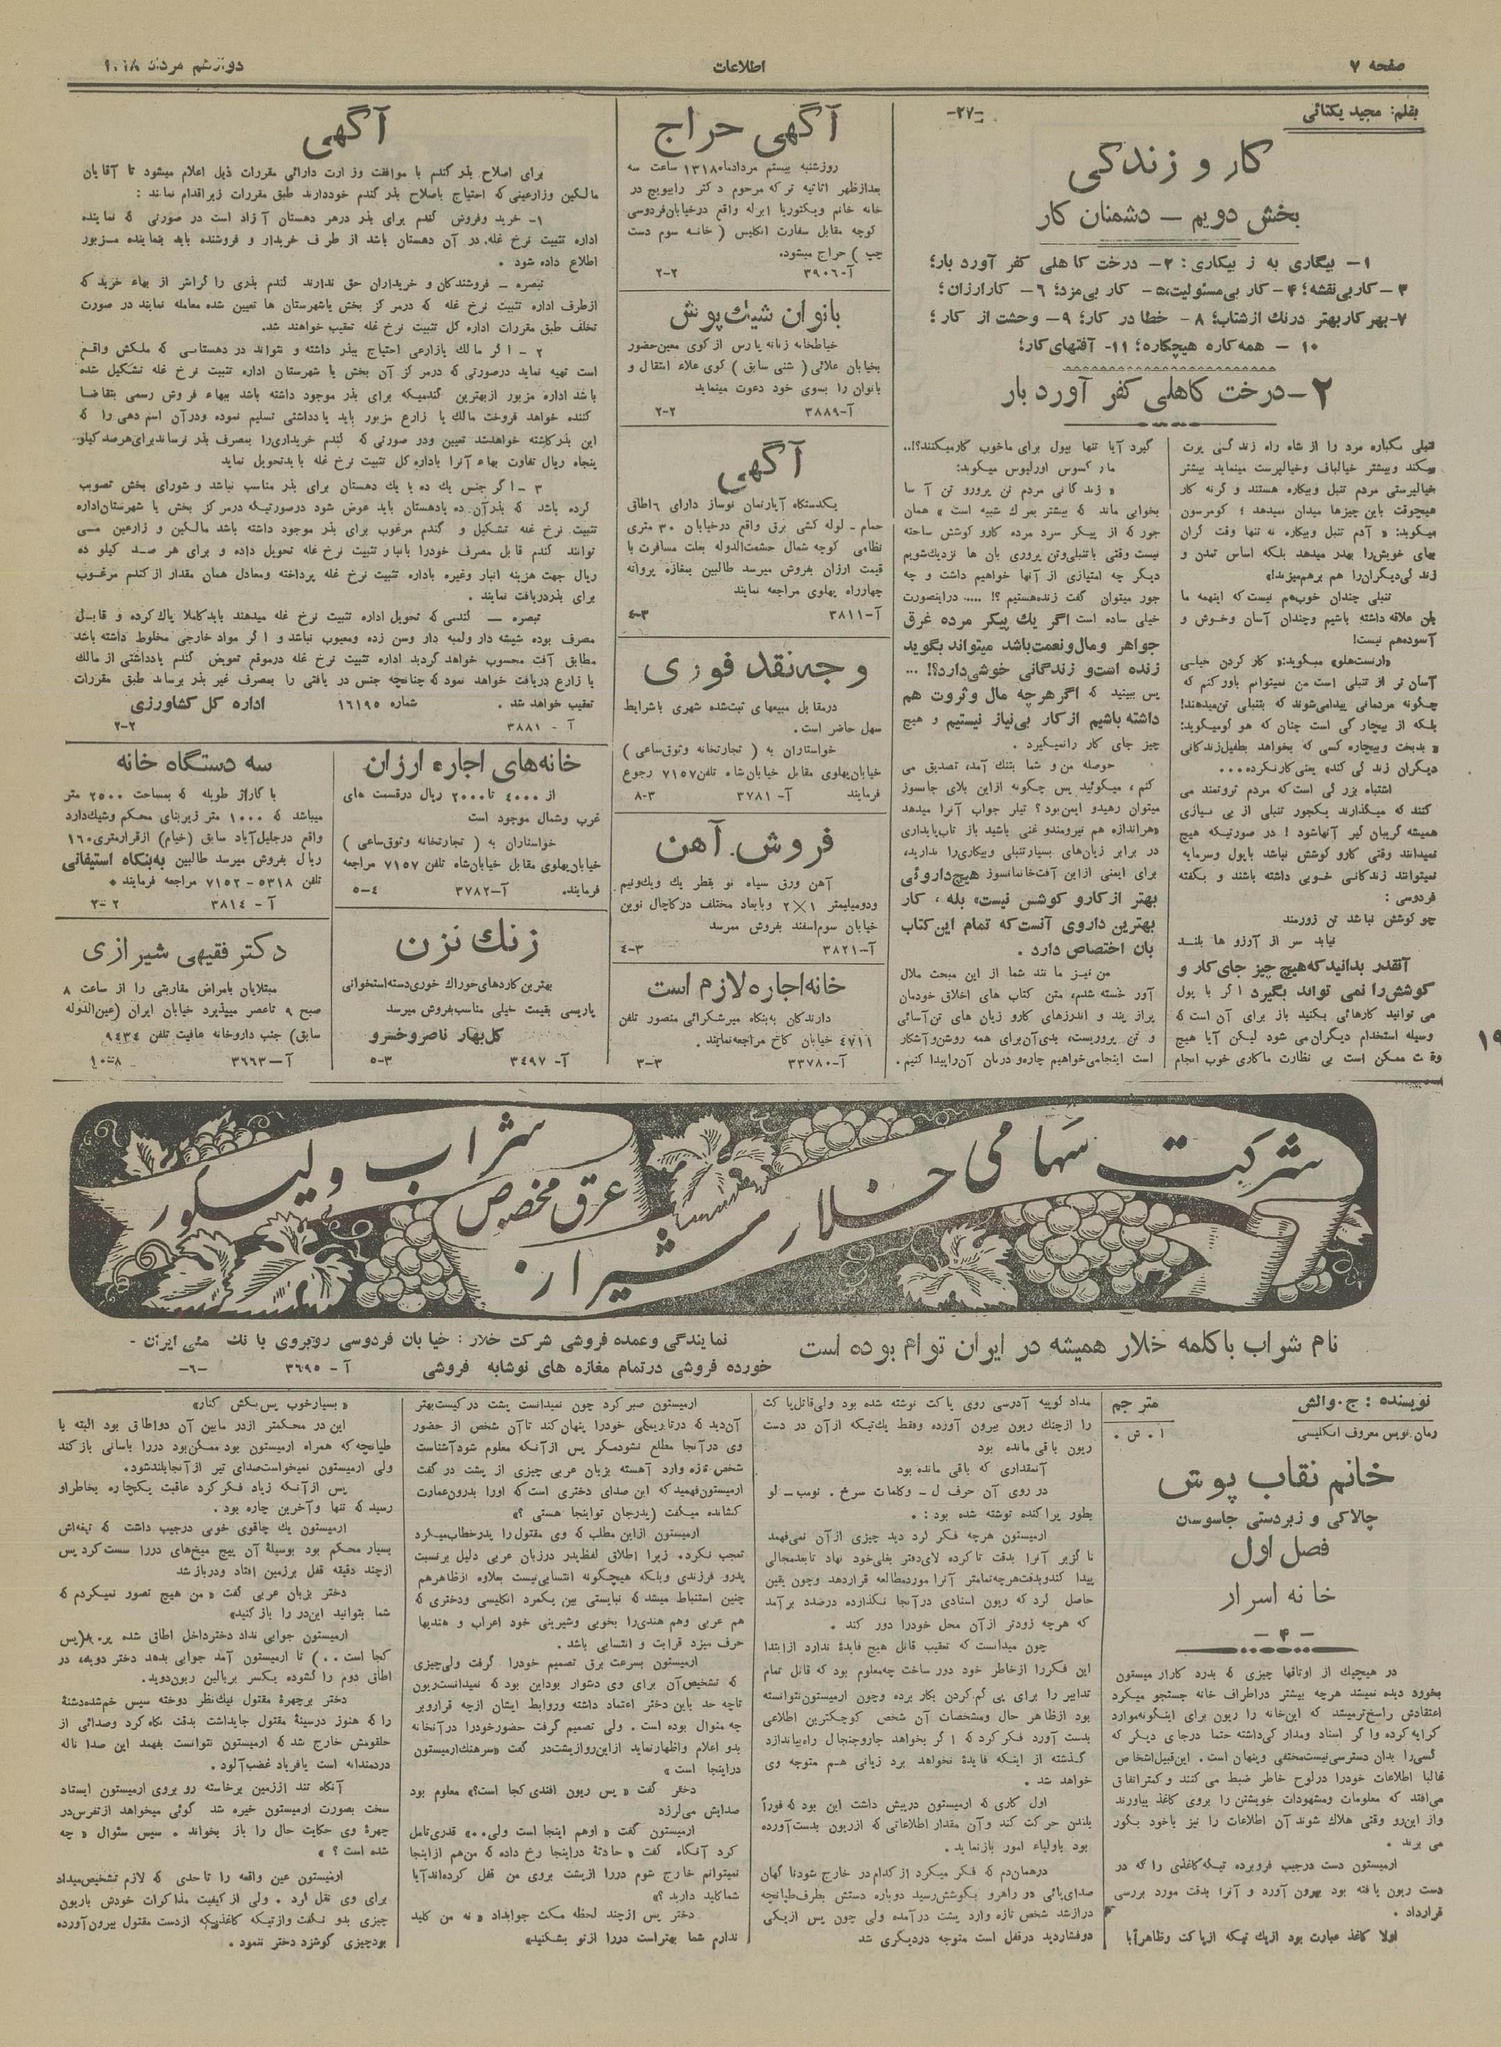 صفحه ۷
اطلاعات
دوازدهم مرداد ۱۳۱۸
بقلم: مجید یکتائی
-۲۷-
کار و زندگی
بخش دویم - دشمنان کار
۱- بیگاری به ز بیکاری: ۲- درخت کاهلی کفر آورد بار؛
۳- کاربی‌نقشه؛ ۴- کار بی‌مسئولیت، ۵- کار بی‌مزد؛ ۶- کارارزان؛
۷- بهر کار بهتر درنك ازشتاب؛ ۸- خطا در کار؛ ۹- وحشت از کار؛
۱۰ - همه‌کاره هیچکاره؛ ۱۱- آفتهای‌کار؛
۲- درخت کاهلی کفر آورد بار
خیالپرستی مردم تنبل وبیکاره هستند و گرنه کار
هیچوقت باین چیزها میدان نمیدهد؛ کومرسون
میگوید: « آدم تنبل وبیکاره نه تنها وقت گران
بهای خویش‌را بهدر میدهد بلکه اساس تمدن و
زندگی‌دیگران‌را هم برهم‌میزند!»
تنبلی چندان خوب‌هم نیست که اینهمه ما
بان علاقه داشته باشیم وچندان آسان وخوش و
آسوده‌هم نیست!
آسان تر از تنبلی است من نمیتوانم باورکنم که
چگونه مردمانی پیدامی‌شوند که بتنبلی تن‌میدهند!
بلکه از بیچارگی است چنان که هوگومیگوید:
« بدبخت وبیچاره کسی که بخواهد بطفیل‌زندگانی
دیگران زندگی کند» یعنی کارنکرده....
اشتباه بزرگی است که مردم ثروتمند می
کنند که میگذارند یکجور تنبلی از بی نیازی
همیشه گریبان گیر آنهاشود! در صورتیکه هیچ
نمیدانند وقتی کارو کوشش نباشد باپول وسرمایه
نمیتوانند زندگانی خوبی داشته باشند و بگفته
فردوسی:
چو کوشش نباشد تن زورمند
نیابد سر از آرزو ها بلند
آنقدر بدانید که هیچ چیز جای کار و
کوشش را نمی تواند بگیرد اگر با پول
می توانید کارهائی بکنید باز برای آن است که
وسیله استخدام دیگران می شود لیکن آیا هیچ
وقت ممکن است بی نظارت ماکاری خوب انجام
گیرد آیا تنها بپول برای ماخوب کارمیکنند؟!..
مارکسوس اورلیوس میگوید:
« زندگانی مردم تن پرورو تن آسا
بخوابی ماند که بیشتر بمرگ شبیه است» همان
جور که از پیکر سرد مرده کارو کوشش ساخته
نیست وقتی باتنبلی‌وتن پروری بان ها نزدیك‌شویم
دیگر چه امتیازی از آنها خواهیم داشت و چه
جور میتوان گفت زنده‌هستیم؟!..... دراینصورت
خیلی ساده است اگر یك پیکر مرده غرق
جواهر ومال‌ونعمت‌باشد میتواند بگوید
زنده است‌و زندگانی خوشی‌دارد؟! ...
پس ببینید که اگر هرچه مال وثروت هم
داشته باشیم از کار بی‌نیاز نیستیم و هیچ
چیز جای کار رانمیگیرد.
حوصله من‌و شما بتنك آمد، تصدیق می
کنم، میگوئید پس چگونه ازاین بلای جانسوز
میتوان رهیدو ایمن‌بود؟ تیلر جواب آنرا میدهد
«هراندازه هم نیرومندو غنی باشید باز تاب‌پایداری
در برابر زیان‌های بسیارتنبلی وبیکاری‌را ندارید،
برای ایمنی ازاین آفت‌خانمانسوز هیچ‌داروئی
بهتر از کارو کوشس نیست» بله، کار
بهترین داروی آنست‌که تمام این‌کتاب
بان اختصاص دارد.
من نیز مانند شما از این مبحث ملال
آور خسته شدم، متن کتاب های اخلاق خودمان
پراز پند و اندرزهای کارو زیان های تن‌آسائی
و تن پروریست، بدی‌آن‌برای همه روشن‌وآشکار
است اینجامی‌خواهیم چاره‌و درمان آن‌راپیدا کنیم.
آگهی حراج
روزشنبه بیستم مردادماه۱۳۱۸ ساعت سه
بعدازظهر اثاثیه ترکه مرحوم دکتر رابینویچ در
خانه خانم ویکتوریا ابرله واقع درخیابان‌فردوسی
کوچه مقابل سفارت انگلیس ( خانه سوم دست
چپ ) حراج میشود.
آ-۳۹۰۶
۲-۲
بانوان شیك‌پوش
خیاطخانه زنانه پارس از کوی معین‌حضور
بخیابان علائی ( شنی سابق ) کوی علاء انتقال و
بانوان را بسوی خود دعوت مینماید
آ-۳۸۸۹
۲-۲
آگهی
یکدستگاه آپارتمان نوساز دارای ۶اطاق
حمام - لوله کشی برق واقع درخیابان ۳۰ متری
نظامی کوچه شمال حشمت‌الدوله بعلت مسافرت با
قیمت ارزان بفروش میرسد طالبین بمغازه پروانه
چهارراه پهلوی مراجعه نمایند
آ-۳۸۱۱
۴-۳
وجه‌نقد فوری
درمقابل مبیعهای ثبت‌شده شهری باشرایط
سهل حاضر است.
خواستاران به ( تجارتخانه وثوق‌ساعی )
خیابان‌پهلوی مقابل خیابان‌شاه تلفن‌۷۱۵۷ رجوع
فرمایند
آ- ۳۷۸۱
۸-۳
فروش آهن
آهن ورق سیاه نو بقطر یك ویك‌ونیم
ودومیلیمتر ۱×۲ وبابعاد مختلف درکاچال نوین
خیابان سوم‌اسفند بفروش میرسد
آ-۳۸۲۱
۴-۳
خانه‌اجاره لازم است
دارندگان به‌بنگاه میرشکرائی منصور تلفن
۴۷۱۱ خیابان کاخ مراجعه‌نمایند.
آ-۳۳۷۸۰
۳-۳
آگهی
برای اصلاح بذر گندم با موافقت وزارت دارائی مقررات ذیل اعلام میشود تا آقایان
مالکین وزارعینی‌که احتیاج باصلاح بذر گندم خوددارند طبق مقررات زیراقدام نمایند:
۱- خرید وفروش گندم برای بذر درهر دهستان آزاد است در صورتی که نماینده
اداره تثبیت نرخ غله. در آن دهستان باشد از طرف خریدار و فروشنده باید بنماینده مزبور
اطلاع داده شود.
تبصره - فروشندگان و خریداران حق ندارند گندم بذری را گرانتر از بهاء خرید که
ازطرف اداره تثبیت نرخ غله که درمرکز بخش یاشهرستان ها تعیین شده معامله نمایند در صورت
تخلف طبق مقررات اداره کل تثبیت نرخ غله تعقیب خواهند شد.
۲ - اگر مالك یازارعی احتیاج ببذر داشته و نتواند در دهستانی که ملکش واقع
است تهیه نماید درصورتی‌که درمرکز آن بخش یا شهرستان اداره تثبیت نرخ غله تشکیل شده
باشد اداره مزبور ازبهترین گندمیکه برای بذر موجود داشته باشد ببهاء فروش رسمی بتقاضا
کننده خواهد فروخت مالك یا زارع مزبور باید یادداشتی تسلیم نموده ودرآن اسم دهی را که
این بذرکاشته خواهدشد تعیین ودر صورتی که گندم خریداری‌را بمصرف بذر نرساندبرای‌هرصدکیلو
پنجاه ریال تفاوت بهاء آنرا باداره کل تثبیت نرخ غله بایدتحویل نماید
۳ - اگر جنس یك ده یا یك دهستان برای بذر مناسب نباشد و شورای بخش تصویب
کرده باشد که بذرآن ده یادهستان باید عوض شود درصورتیکه درمرکز بخش یا شهرستان‌اداره
تثبیت نرخ غله تشکیل و گندم مرغوب برای بذر موجود داشته باشد مالکین و زارعین می
توانند گندم قابل مصرف خودرا بانبار تثبیت نرخ غله تحویل داده و برای هر صد کیلو ده
ریال جهت هزینه انبار وغیره باداره تثبیت نرخ غله پرداخته ومعادل همان مقدار ازگندم مرغوب
برای بذردریافت نمایند.
تبصره - گندمی که تحویل اداره تثبیت نرخ غله میدهند بایدکاملا پاك‌کرده و قابل
مصرف بوده شیشه دار ولمبه دار وسن زده ومعیوب نباشد و اگر مواد خارجی مخلوط داشته باشد
مطابق آفت محسوب خواهد گردید اداره تثبیت نرخ غله درموقع تعویض گندم یادداشتی از مالك
یا زارع دریافت خواهد نمود که چنانچه جنس دریافتی را بمصرف غیر بذر برساند طبق مقررات
تعقیب خواهد شد.
شماره ۱۶۱۹۵
اداره کل کشاورزی
آ - ۳۸۸۱
۲-۲
خانه‌های اجاره ارزان
از ۴۰۰ تا۲۰۰۰ ریال درقسمت های
غرب وشمال موجود است
خواستاران به ( تجارتخانه وثوق‌ساعی )
خیابان‌پهلوی مقابل خیابان‌شاه تلفن ۷۱۵۷ مراجعه
فرمایند.
آ-۳۷۸۲
۵-۴
زنك نزن
بهترین کاردهای‌خوراك خوری‌دسته‌استخوانی
پاریسی بقیمت خیلی مناسب‌بفروش میرسد
گل‌بهار ناصر‌وخسرو
آ- ۳۴۹۷
۵-۳
سه دستگاه خانه
با گاراژ طویله که بمساحت ۲۵۰۰ متر
میباشد که ۱۰۰۰ متر زیربنای محکم وشیك‌دارد
واقع درجلیل‌آباد سابق (خیام) ازقرارمتری۱۶۰
ریال بفروش میرسد طالبین به‌بنگاه استیفائی
تلفن ۵۳۱۸- ۷۱۵۲ مراجعه فرمایند
آ - ۳۸۱۴
۲-۲
دکتر فقیهی شیرازی
مبتلایان بامراض مقاربتی را از ساعت ۸
صبح ۹ تاعصر میپذیرد خیابان ایران (عین‌الدوله
سابق) جنب داروخانه عافیت تلفن ۹۴۳۴
آ-۳۶۶۳
۱۰-۸
شرکت سهامی خلار شیراز
شراب ولیکور
عرق مخصوص
نام شراب باکلمه خلار همیشه در ایران توام بوده است
نمایندگی وعمده فروشی شرکت خلار: خیابان فردوسی روبروی بانك ملی ایران -
خورده فروشی درتمام مغازه های نوشابه فروشی
آ- ۳۶۹۵
-۶-
نویسنده: ج. والش
رمان نویس معروف انگلیسی
مترجم
ا. ش.
خانم نقاب پوش
چالاکی و زبردستی جاسوسان
فصل اول
خانه اسرار
-۴-
در هیچیك از اوتاقها چیزی که بدرد کارآرمیستون
بخورد دیده نمیشد هرچه بیشتر دراطراف خانه جستجو میکرد
اعتقادش راسخ‌ترمیشد که این‌خانه را ریون برای اینگونه‌موارد
کرایه کرده واگر اسناد ومدارکی‌داشته حتما درجای دیگر که
کسی‌را بدان دسترسی نیست‌مخفی وپنهان است. این‌قبیل‌اشخاص
غالبا اطلاعات خودرا درلوح خاطر ضبط می کنند و کمتراتفاق
می‌افتد که معلومات ومشهودات خویشتن را بروی کاغذ بیاورند
واز این‌رو وقتی هلاك شوند آن اطلاعات را نیز باخود بگور
می برند.
ارمیستون دست درجیب فروبرده تیکه‌کاغذی را که در
دست ریون یافته بود بیرون آورد و آنرا بدقت مورد بررسی
قرارداد.
اولا کاغذ عبارت بود ازیك تیکه ازپاکت وظاهراً با
مداد کوپیه آدرسی روی پاکت نوشته شده بود ولی‌قاتل‌پاکت
را ازچنك ریون بیرون آورده وفقط یك‌تیکه ازآن در دست
ریون باقی مانده بود
آنمقداری که باقی مانده بود
در روی آن حرف ل - وکلمات سرخ. نومب - لو
بطور پراکنده نوشته شده بود:.
ارمیستون هرچه فکر کرد دید چیزی ازآن نمی‌فهمد
ناگزیر آنرا بدقت تاکرده لای‌دفتر بغلی‌خود نهاد تابعدمجالی
پیدا کندوبدقت‌هرچه‌تمامتر آنرا موردمطالعه قراردهد وچون یقین
حاصل کرد که ریون اسنادی درآنجا نگذارده درصدد برآمد
که هرچه زودتر ازآن محل خودرا دور کند.
چون میدانست که تعقیب قاتل هیچ فایدهٔ ندارد ازابتدا
این فکررا ازخاطر خود دور ساخت چه‌معلوم بود که قاتل تمام
تدابیر را برای پی گم کردن بکار برده وچون ارمیستون‌نتوانسته
بود ازظاهر حال ومشخصات آن شخص کوچکترین اطلاعی
بدست آورد فکرکرد که اگر بخواهد جاروجنجال راه‌بیاندازد
گذشته از اینکه فایدهٔ نخواهد برد زیانی هم متوجه وی
خواهد شد.
اول کاری که ارمیستون درپیش داشت این بود که فوراً
بلندن حرکت کند وآن مقدار اطلاعاتی که ازریون بدست‌آورده
بود باولیاء امور بازنماید.
درهمان‌دم که فکر میکرد از کدام‌در خارج شودناگهان
صدای‌پائی در راهرو بگوشش‌رسید دوباره دستش بطرف‌طپانچه
درازشد شخص تازه وارد پشت درآمده ولی چون پس ازیکی
دوفشاردید درقفل است متوجه دردیگری شد
ارمیستون صبر کرد چون نمیدانست پشت در کیست‌بهتر
آن‌دید که درتاریکی خودرا پنهان کند تاآن شخص از حضور
وی درآنجا مطلع نشودمگر پس ازآنکه معلوم شودآشناست
شخص تازه وارد آهسته بزبان عربی چیزی از پشت در گفت
ارمیستون‌فهمیدکه این صدای دختری است‌که اورا بدرون‌عمارت
کشانده میگفت (پدرجان تواینجا هستی؟)
ارمیستون ازاین مطلب که وی مقتول را پدرخطاب‌میکرد
تعجب نکرد. زیرا اطلاق لفظ‌پدر درزبان عربی دلیل برنسبت
پدرو فرزندی وبلکه هیچگونه انتسابی‌نیست بعلاوه ازظاهرهم
چنین استنباط میشد که نبایستی بین یکمرد انگلیسی ودختری که
هم عربی وهم هندی‌را بخوبی وشیرینی خود اعراب و هندیها
حرف میزد قرابت و انتسابی باشد.
ارمیستون بسرعت برق تصمیم خودرا گرفت ولی‌چیزی
که تشخیص‌آن برای وی دشوار بوداین بود که نمیدانست‌ریون
تاچه حد باین دختر اعتماد داشته وروابط ایشان ازچه قراروبر
چه منوال بوده است. ولی تصمیم گرفت حضورخودرا درآنخانه
بدو اعلام واظهارنماید ازاین‌روازپشت‌در گفت «سرهنك‌ارمیستون
دراینجا است»
دختر گفت « پس ریون افندی کجا است؟» معلوم بود
صدایش می‌لرزد
ارمیستون گفت « اوهم اینجا است ولی..» قدری‌تامل
کرد آنگاه گفت « حادثهٔ دراینجا رخ داده که من‌هم ازاینجا
نمیتوانم خارج شوم دررا ازپشت بروی من قفل کرده‌اندآیا
شماکلید دارید؟»
دختر پس ازچند لحظه مکث جوابداد « نه من کلید
ندارم شما بهتراست دررا ازتو بشکنید»
« بسیارخوب پس‌بکش کنار»
این در محکمتر ازدر مابین آن دواطاق بود البته با
طپانچه‌که همراه ارمیستون بود ممکن‌بود دررا باسانی بازکند
ولی ارمیستون نمیخواست‌صدای تیر ازآنجابلندشود.
پس ازآنکه زیاد فکر کرد عاقبت یکچاره بخاطراو
رسید که تنها وآخرین چاره بود.
ارمیستون یك چاقوی خوبی درجیب داشت که تیغه‌اش
بسیار محکم بود بوسیلهٔ آن پیچ میخ‌های دررا سست‌کردپس
ازچند دقیقه قفل برزمین افتاد ودربازشد
دختر بزبان عربی گفت « من هیچ تصور نمیکردم که
شما بتوانید این‌در را بازکنید»
کجا است..) تا ارمیستون آمد جوابی بدهد دختر دوید، در
اطاق دوم را گشوده یکسر بربالین ریون‌دوید.
دختر برچهرهٔ مقتول نیك‌نظر دوخته سپس خم‌شده‌دشنهٔ
را که هنوز درسینهٔ مقتول جایداشت بدقت نگاه کرد وصدائی از
حلقومش خارج شد که ارمیستون نتوانست بفهمد این صدا ناله
دردمندانه است یافریاد غضب‌آلود.
آنگاه تند اززمین برخاسته رو بروی ارمیستون ایستاد
سخت بصورت ارمیستون خیره شد گوئی میخواهد ازتفرس‌در
چهرهٔ وی حکایت حال را باز بخواند. سپس سئوال « چه
شده است؟»
ارمیستون عین واقعه را تاحدی که لازم تشخیص‌میداد
برای وی نقل کرد. ولی از کیفیت مذاکرات خودش باریون
چیزی بدو نگفت وازتیکه کاغذیکه ازدست مقتول بیرون‌آورده
بودچیزی گوشزد دختر ننمود.